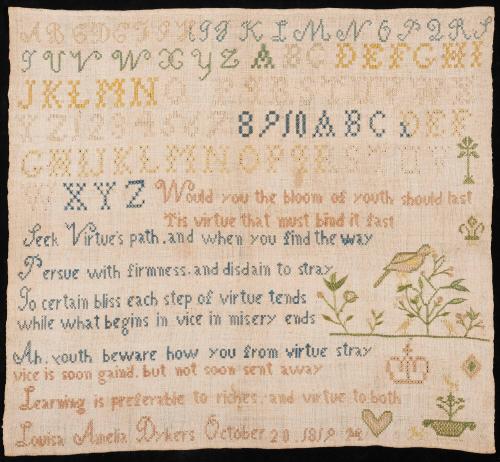 A B C D E F G H I J K L M N O P Q R S
T U V W X Y Z A B C D E F G H I
J K L M N O P Q R S T U V W X
Y Z 1 2 3 4 5 6 7 8 9 10 A B C D E F
G H I J K L M N O P Q R S T U V
W X Y Z Would you the bloom of youth should last
Tis virtue that must bind it fast
Seek Virtue's path, and when you find the way
Persue with firmness, and disdain to stray
To certain bliss each step of virtue tends
while what begins in vice in misery ends
Ah, youth beware how you from virtue stray
vice is soon gaind, but not soon sent away
Learning is preferable to riches, and virtue to both
Louisa Amelia Dykers October 20. 1819